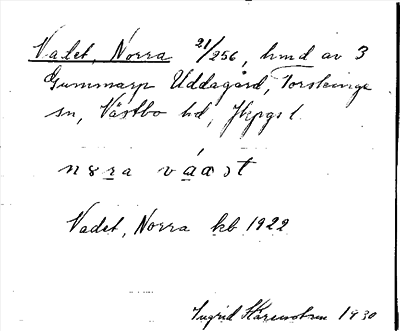 Valet, Norra 21/256, hmd av 3
Gummarp Uddagård, Torskinge
sn, Västbo hd, Jkpgs l.
nɘra váaɔt
Vadet, Norra kb 1922
Ingrid 1930